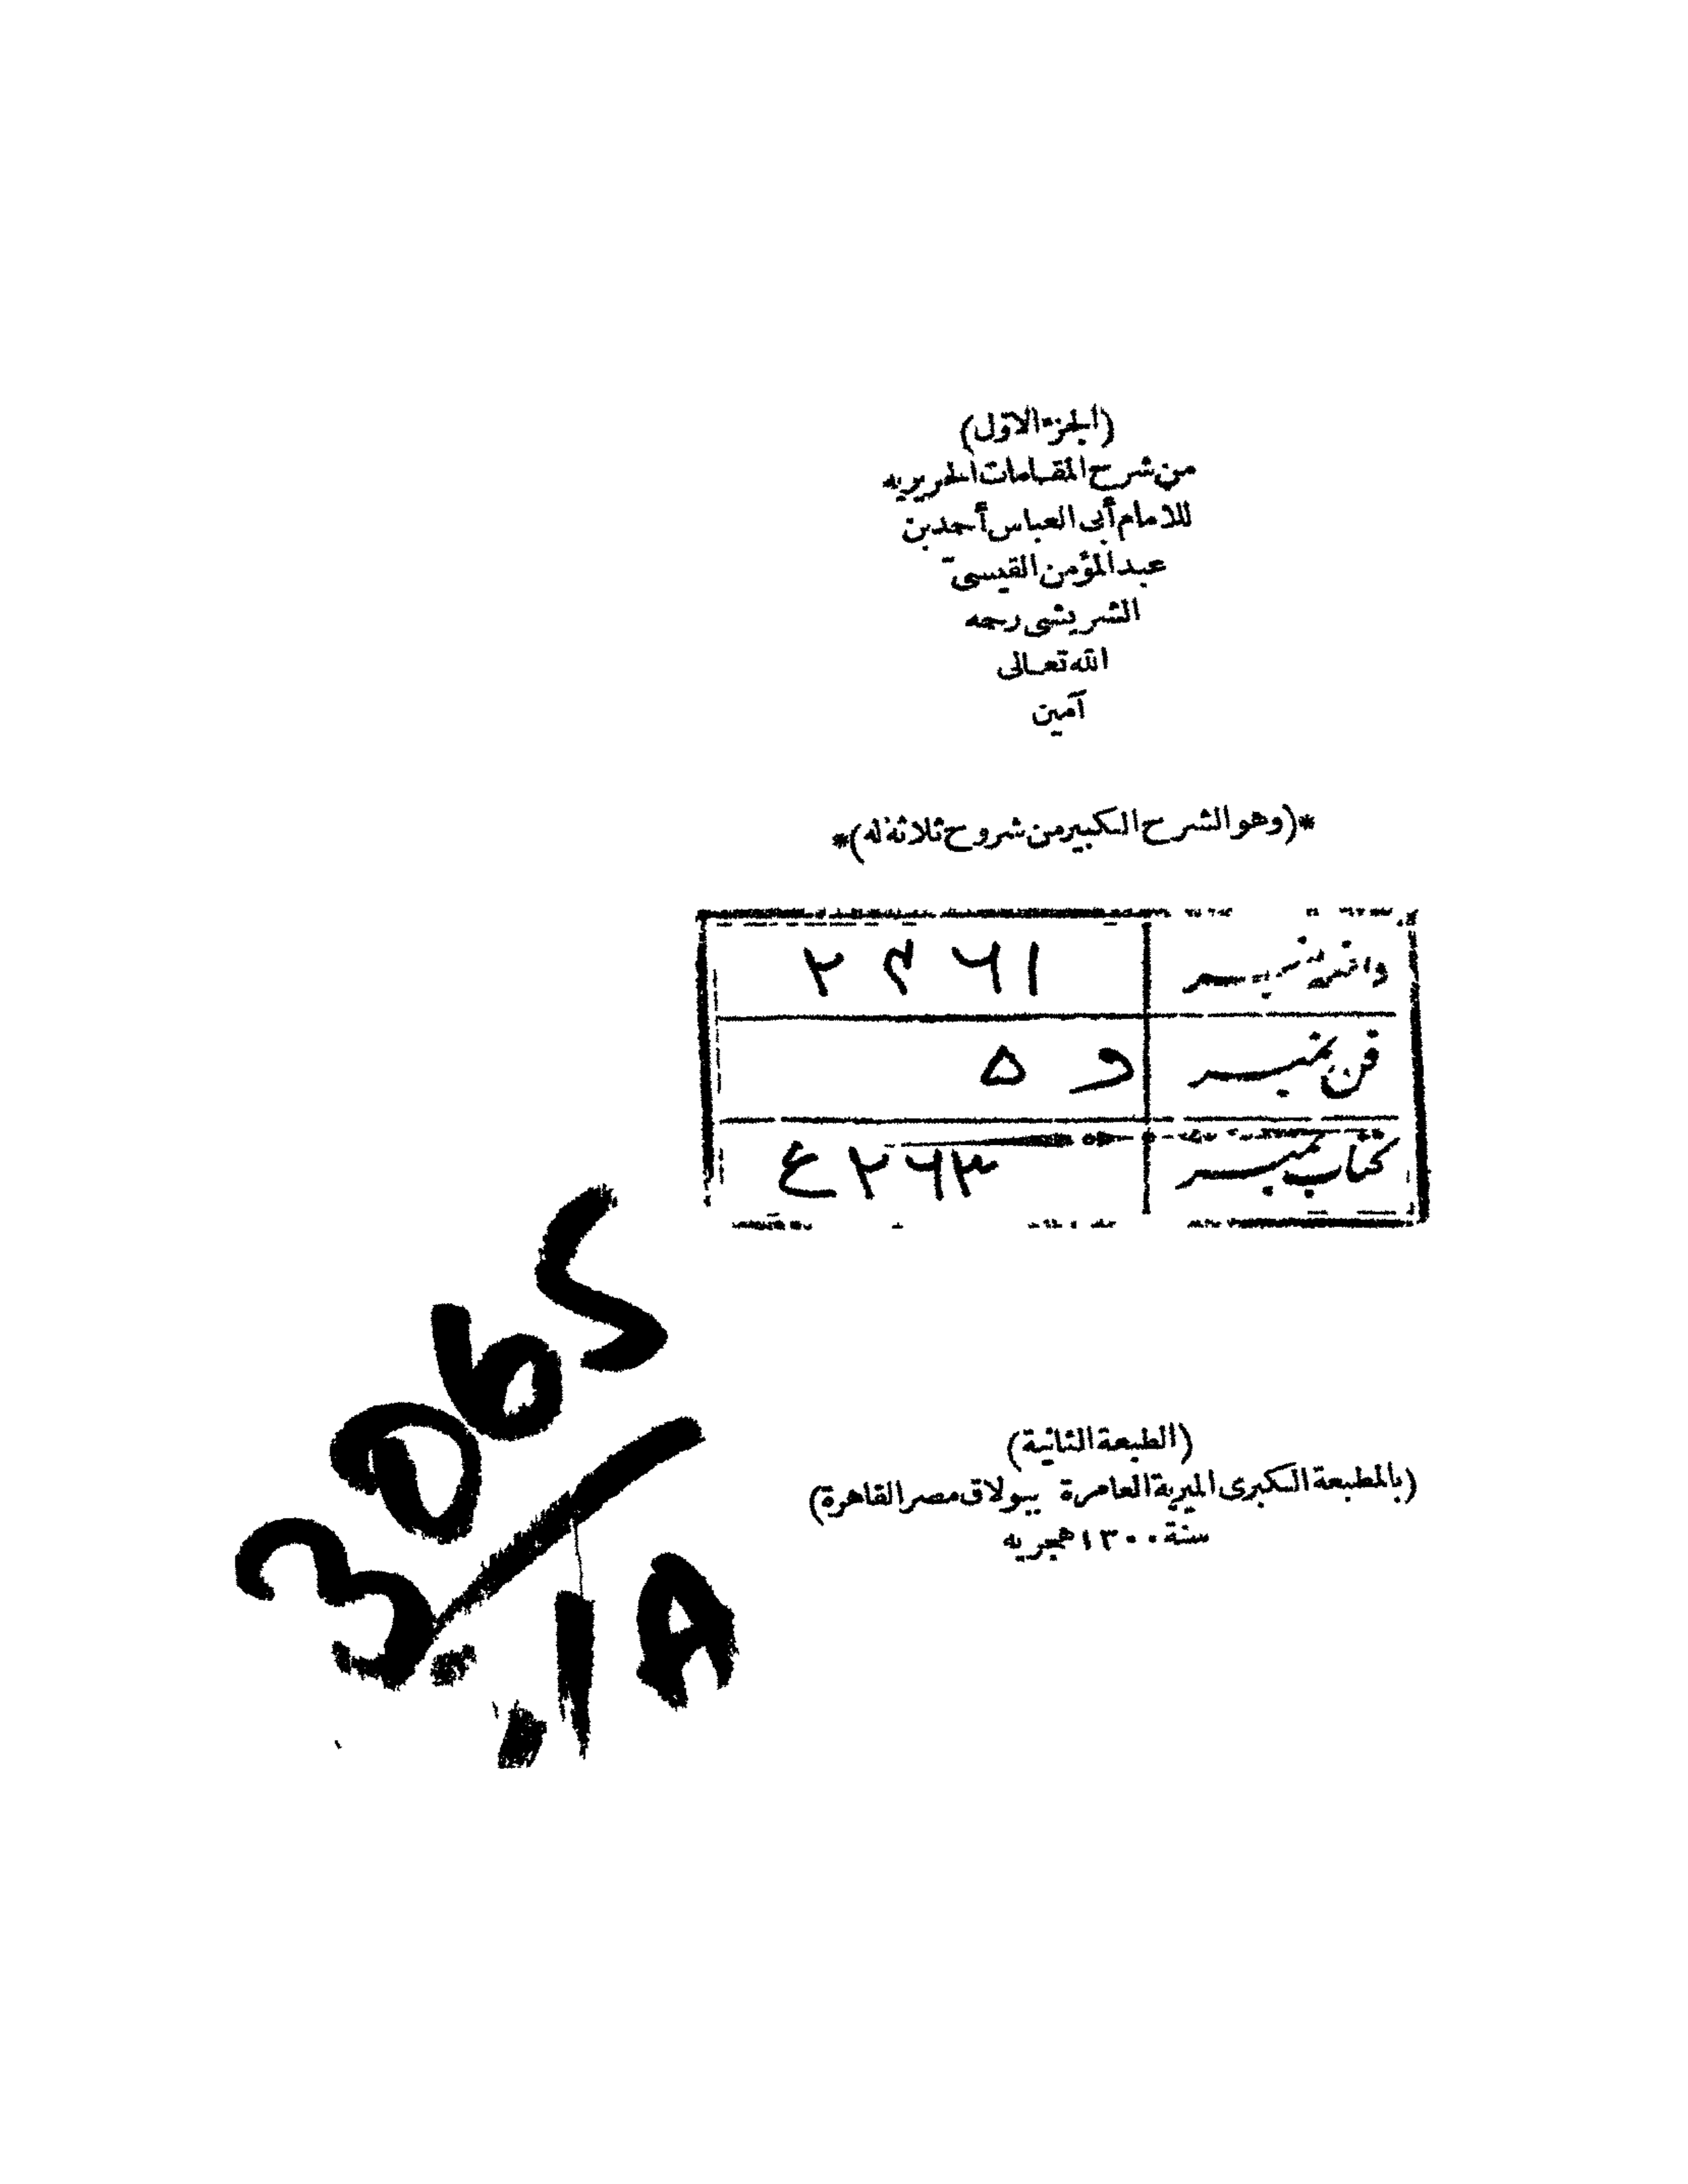 (الجزء الاوّل)
من شرح المقامات الحريريه
للامام أبى العباس أحمد بن
عبد المؤمن القيسىّ
الشريشى رحمه
الله تعالى
آمين
*(وهو الشرح الكبير من شروح ثلاثة له)*
فن نمبر و ۵
كتاب نمبر
(الطبعة الثانية)
(بالمطبعة الكبرى الميرية العامرة ببولاق مصر القاهرة)
سنة ١٣٠٠ هجريه